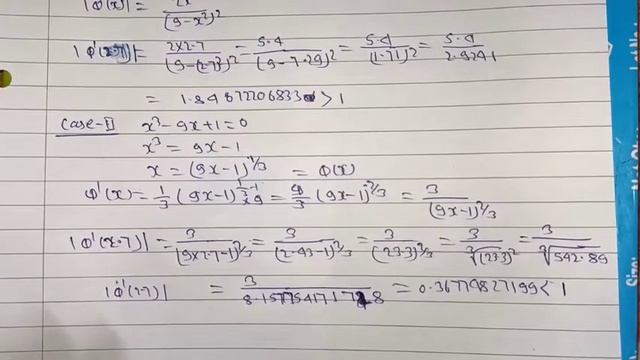 |Φ'(x)| = 2x/(9-x²)²
|Φ'(2.7)| = 2×2.7/(9-(2.7)²)² = 5.4/(9-7.29)² = 5.4/(1.71)² = 5.4/2.9241
= 1.84672206833 > 1
Case-II x³-9x+1=0
x³ = 9x-1
x = (9x-1)^1/3 = Φ(x)
Φ'(x) = 1/3 (9x-1)^(1/3-1) ×9 = 9/3 (9x-1)^-2/3 = 3/(9x-1)^2/3
|Φ'(2.7)| = 3/(9×2.7-1)^2/3 = 3/(2.43-1)^2/3 = 3/(23.3)^2/3 = 3/∛(23.3)² = 3/∛542.89
|Φ'(2.7)| = 3/8.157754171 = 0.36774827199 < 1